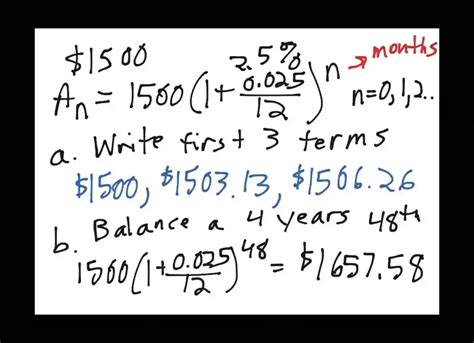 $1500 2.5% → months
Aₙ = 1500(1+ 0.025/12)ⁿ n=0,1,2..
a. Write first 3 terms
$1500, $1503.13, $1506.26
b. Balance a 4 years 48th
1500(1+ 0.025/12)⁴⁸ = $1657.58